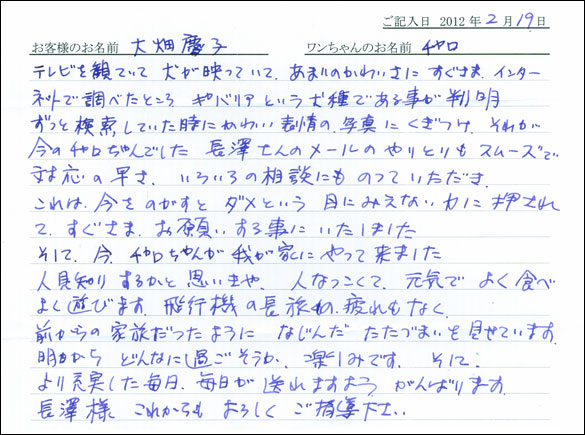 ご記入日 2012年2月19日
お客様のお名前 大畑慶子 ワンちゃんのお名前 チャロ
テレビを観ていて 犬が映っていて、あまりのかわいさに すぐさま、インター
ネットで調べたところ キャバリア という犬種である事が 判明
ずっと検索していた時にかわいい表情の、写真に くぎつけ、それが
今のチャロちゃんでした 長澤さんのメールのやりとりも スムーズで
対応の早さ、いろいろの相談にも のっていただき、
これは、今をのがすと ダメという 目にみえない力に 押され
て、すぐさま、お願いする事に いたしました
そして、今、チャロちゃんが 我が家に やって来ました
人見知りするかと思いきや、人なつっこくて、元気で よく食べ
よく遊びます、飛行機の長旅の、疲れもなく、
前からの家族だったように なじんだ たたづまいを見せています、
明日から どんなに過ごそうか、楽しみです、そして、
より充実した毎日、毎日が 送れますよう がんばります、
長澤様 これからも よろしく ご指導下さい、